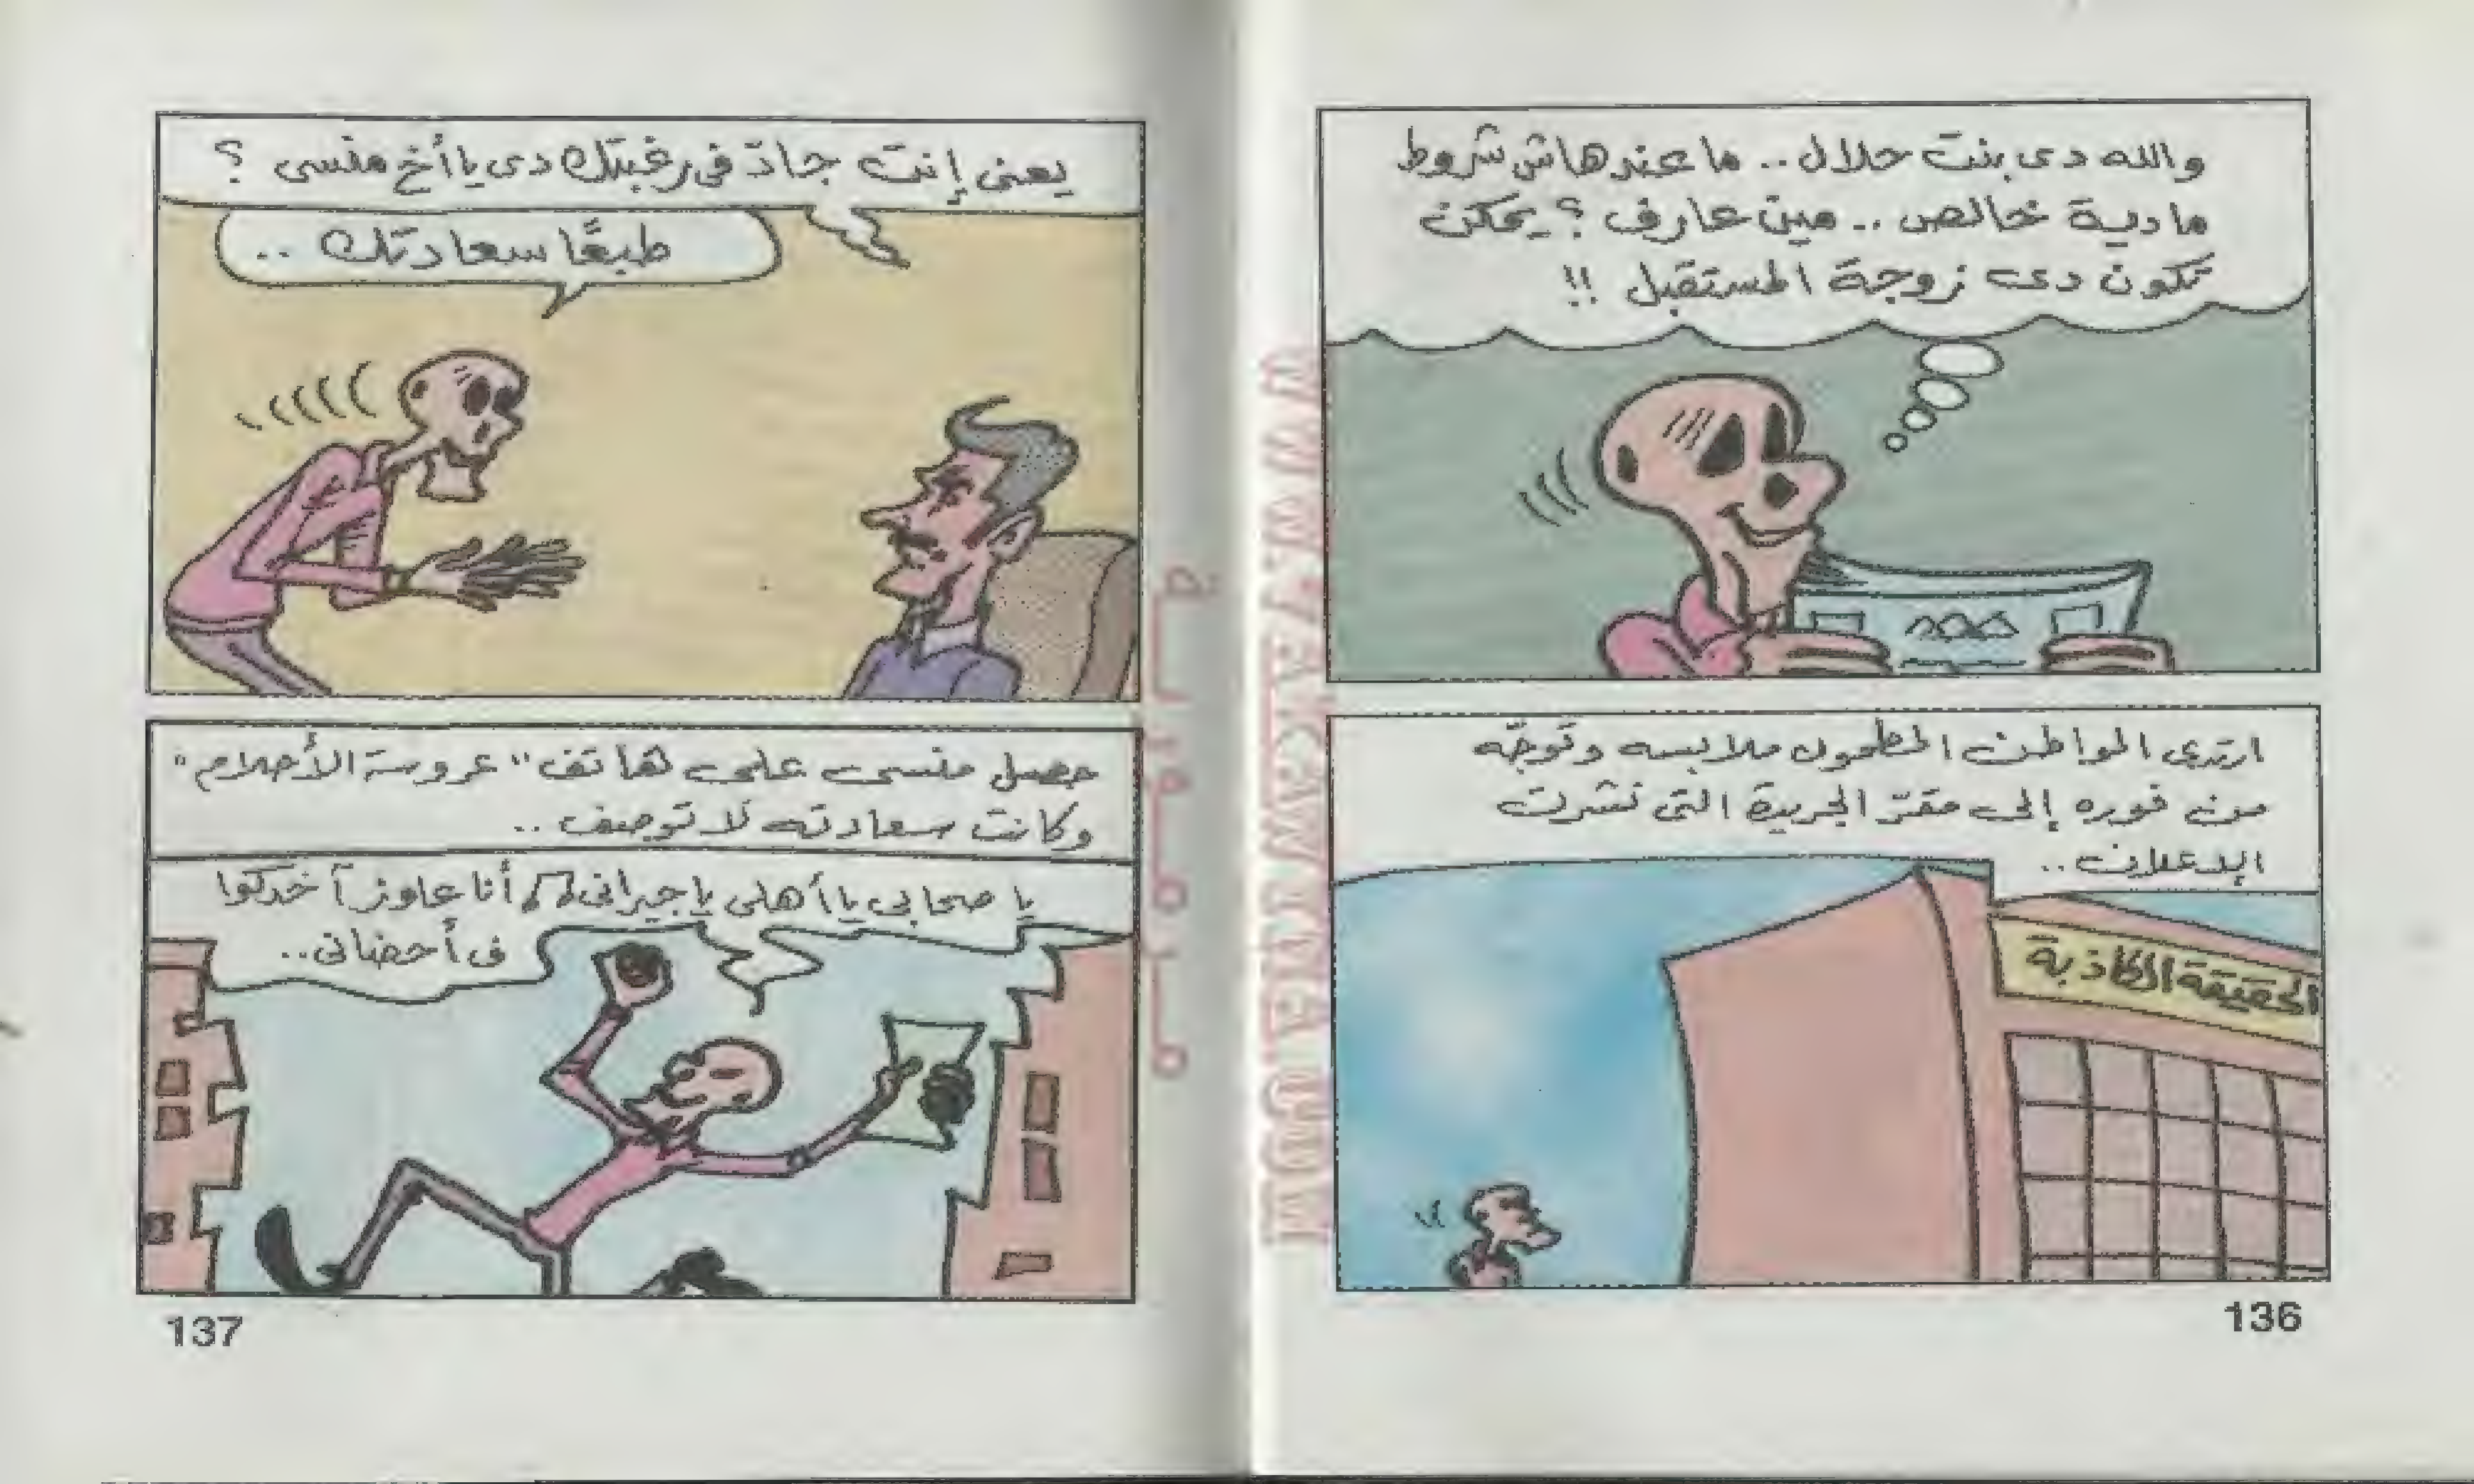 والله دى بنت حلال .. ما عندهاش شروط
مادية خالص .. مين عارف ؟ يمكن
تكون دى زوجة المستقبل !!
ارتدى المواطن المطحون ملابسه وتوجّه
من فوره إلى مقرّ الجريدة التى نشرت
الإعلان ..
الحقيقة الكاذبة
136
يعنى إنت جادّ فى رغبتك دى يا أخ منسى ؟
طبعًا سعادتك ..
حصل منسى على هاتف "عروسة الأحلام"
وكانت سعادته لا توصف ..
يا صحابى يا أهلى يا جيرانى أنا عاوز آخدكوا
فى أحضانى ..
137